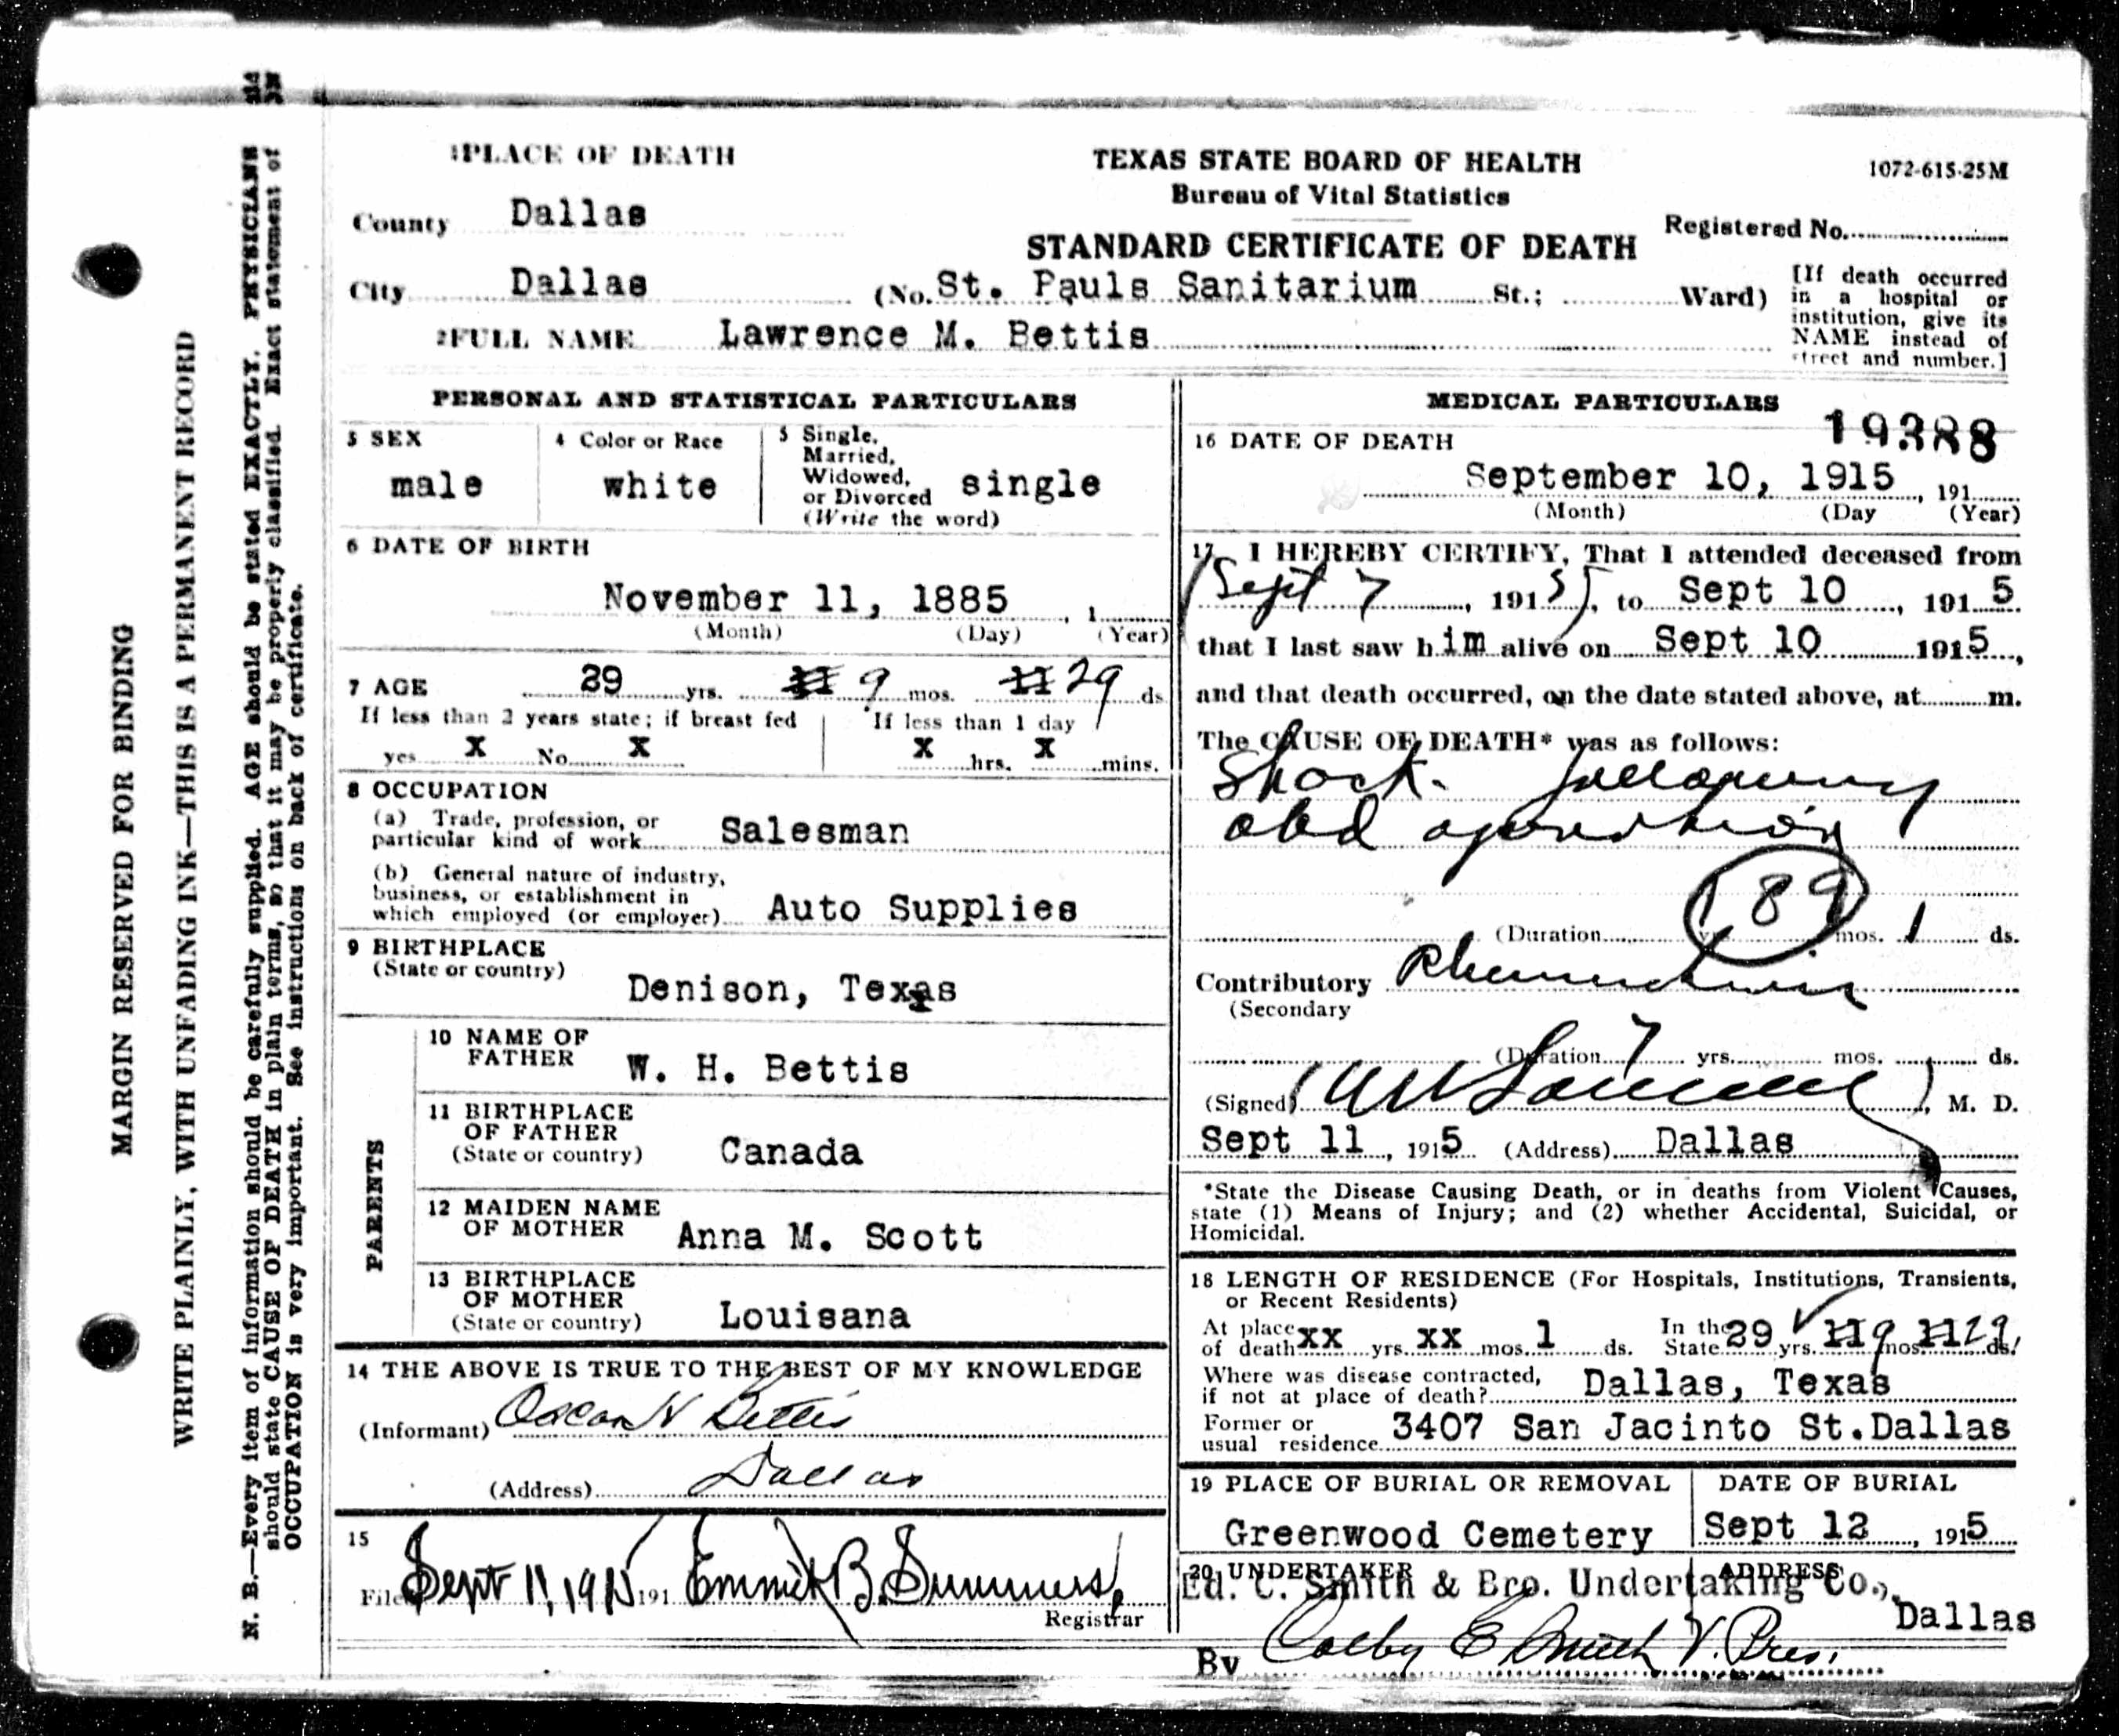 MARGIN RESERVED FOR BINDING
WRITE PLAINLY, WITH UNFADING INK—THIS IS A PERMANENT RECORD
N. B.—Every item of information should be carefully supplied. AGE should be stated EXACTLY. PHYSICIANS
should state CAUSE OF DEATH in plain terms, so that it may be properly classified. Exact statement of
OCCUPATION is very important. See instructions on back of certificate.
1PLACE OF DEATH
County Dallas
City Dallas (No. St. Pauls Sanitarium St.; Ward)
2FULL NAME Lawrence M. Bettis
TEXAS STATE BOARD OF HEALTH
Bureau of Vital Statistics
STANDARD CERTIFICATE OF DEATH
1072-615-25M
Registered No.
[If death occurred
in a hospital or
institution, give its
NAME instead of
street and number.]
PERSONAL AND STATISTICAL PARTICULARS
3 SEX
male
4 Color or Race
white
5 Single,
Married,
Widowed,
or Divorced single
(Write the word)
6 DATE OF BIRTH
November 11, 1885, 1
(Month) (Day) (Year)
7 AGE 29 yrs. 11 9 mos. 11 29 ds
If less than 2 years state; if breast fed
yes X No X
If less than 1 day
X hrs. X mins.
8 OCCUPATION
(a) Trade, profession, or
particular kind of work Salesman
(b) General nature of industry,
business, or establishment in
which employed (or employer) Auto Supplies
9 BIRTHPLACE
(State or country)
Denison, Texas
PARENTS
10 NAME OF
FATHER W. H. Bettis
11 BIRTHPLACE
OF FATHER
(State or country) Canada
12 MAIDEN NAME
OF MOTHER Anna M. Scott
13 BIRTHPLACE
OF MOTHER
(State or country) Louisana
14 THE ABOVE IS TRUE TO THE BEST OF MY KNOWLEDGE
(Informant) Oscar H Bettis
(Address) Dallas
15
Filed Sept 11, 1915 191 Emmitt B. Summers,
Registrar
MEDICAL PARTICULARS
19388
16 DATE OF DEATH
September 10, 1915, 191
(Month) (Day (Year)
17 I HEREBY CERTIFY, That I attended deceased from
(Sept 7, 1915), to Sept 10, 1915.
that I last saw him alive on Sept 10 1915,
and that death occurred, on the date stated above, at m.
The CAUSE OF DEATH* was as follows:
Shock. following
abd operation
189
(Duration yrs. mos. 1 ds.
Contributory Rheumatism
(Secondary
(Duration 7 yrs. mos. ds.
(Signed) M. D.
Sept 11, 1915 (Address) Dallas
*State the Disease Causing Death, or in deaths from Violent Causes,
state (1) Means of Injury; and (2) whether Accidental, Suicidal, or
Homicidal.
18 LENGTH OF RESIDENCE (For Hospitals, Institutions, Transients,
or Recent Residents)
At place
of death XX yrs. XX mos. 1 ds. In the
State 29 yrs. 11 9 mos. 11 29 ds.
Where was disease contracted,
if not at place of death? Dallas, Texas
Former or
usual residence 3407 San Jacinto St.Dallas
19 PLACE OF BURIAL OR REMOVAL
Greenwood Cemetery
DATE OF BURIAL
Sept 12, 1915
20 UNDERTAKER ADDRESS
Ed. C. Smith & Bro. Undertaking Co.,
Dallas
By Colby E Smith V. Pres.